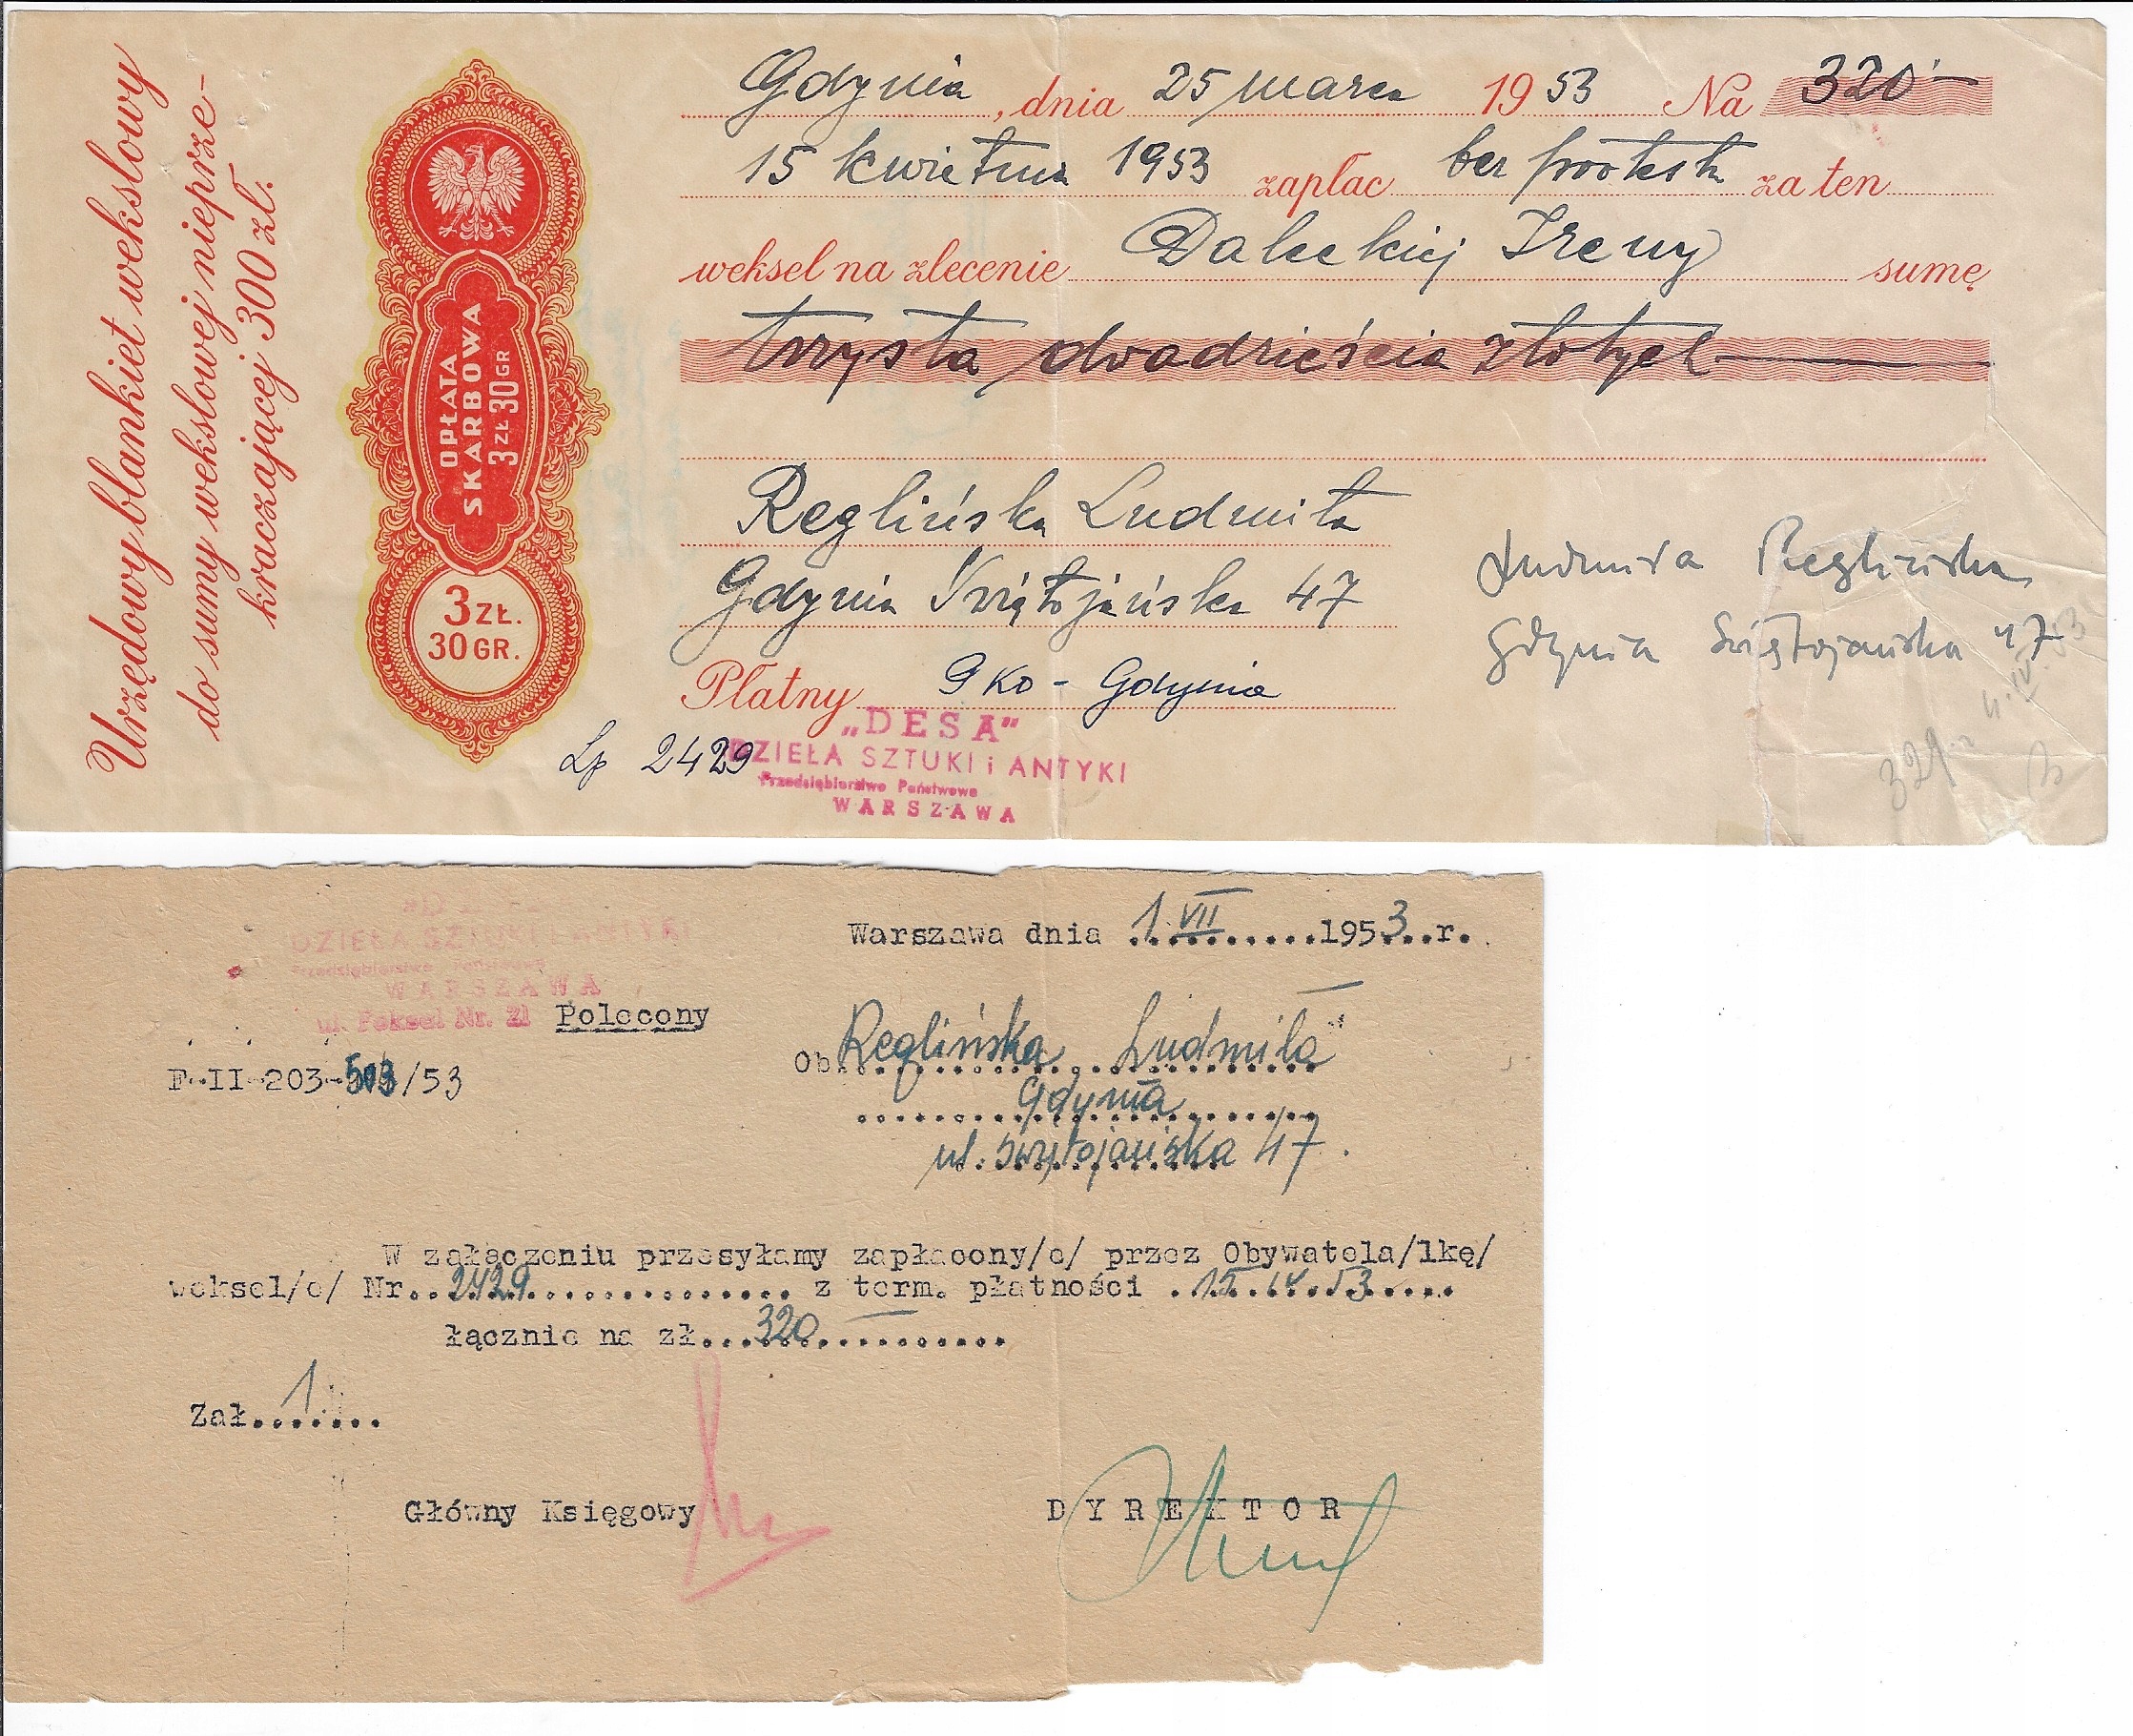 Urzędowy blankiet wekslowy
do sumy wekslowej nieprze-
kraczającej 300 zł.
OPŁATA
SKARBOWA
3 ZŁ 30 GR
3 ZŁ.
30 GR.
Gdynia, dnia 25 marca 1953 Na 320.—
15 kwietnia 1953 zapłac bez protestu za ten
weksel na zlecenie Daleckiej Ireny sumę
trzysta dwadzieścia złotych
Reglińska Ludmiła
Gdynia Świętojańska 47
Płatny PKO - Gdynia
Ludmiła Reglińska
Gdynia Świętojańska 47
Lp 2429
„DESA"
DZIEŁA SZTUKI i ANTYKI
Przedsiębiorstwo Państwowe
WARSZAWA
DZIEŁA SZTUKI i ANTYKI
Przedsiębiorstwo Państwowe
WARSZAWA
ul. Foksal Nr. 21
Warszawa dnia 1 VII 1953..r.
Polecony
Ob. Reglińska Ludmiła
Gdynia
ul. Świętojańska 47.
F-II-203-503/53
W załączeniu przesyłamy zapłacony/e/ przez Obywatela/lkę/
weksel/e/ Nr..2429................ z term. płatności .15.IV.53.....
łącznie na zł...320..........
Zał.1......
Główny Księgowy
DYREKTOR